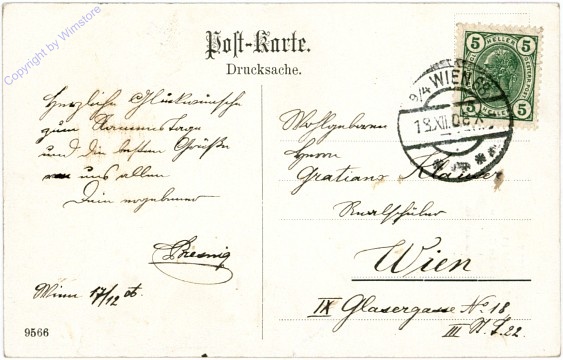 Copyright by Wimstore
Post-Karte.
Drucksache.
5 HELLER 5
9/4 WIEN 68
18.XII.06.X
Herzliche Glückwünsche
zum Namenstage
und die besten Grüße
von uns allen
Dein ergebener
Wien 17/12 06
9566
Wohlgeboren
Herrn
Gratian
Realschüler
Wien
IX Glasergasse No. 18
III St. T. 22.